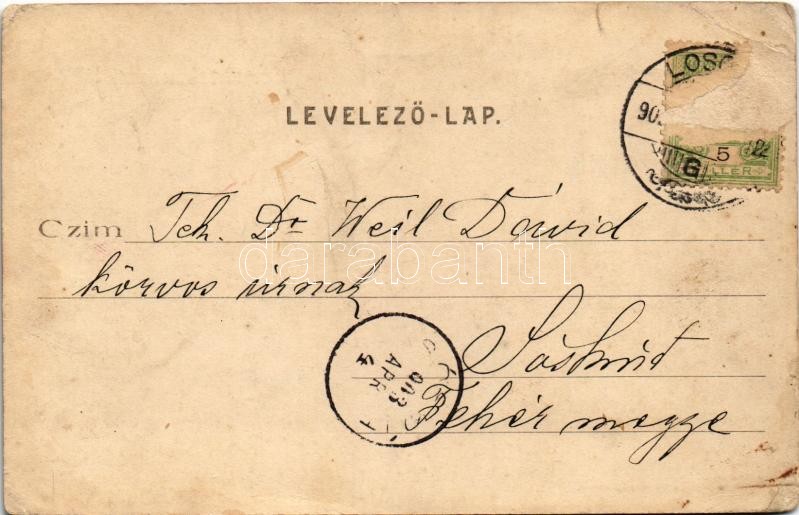 LEVELEZŐ-LAP.
LOSO
903
5
LLER
Czim Tek. Dr Weil Dávid
körvos úrnak
Sóskút
Fehér megye
903
APR
4
darabanth